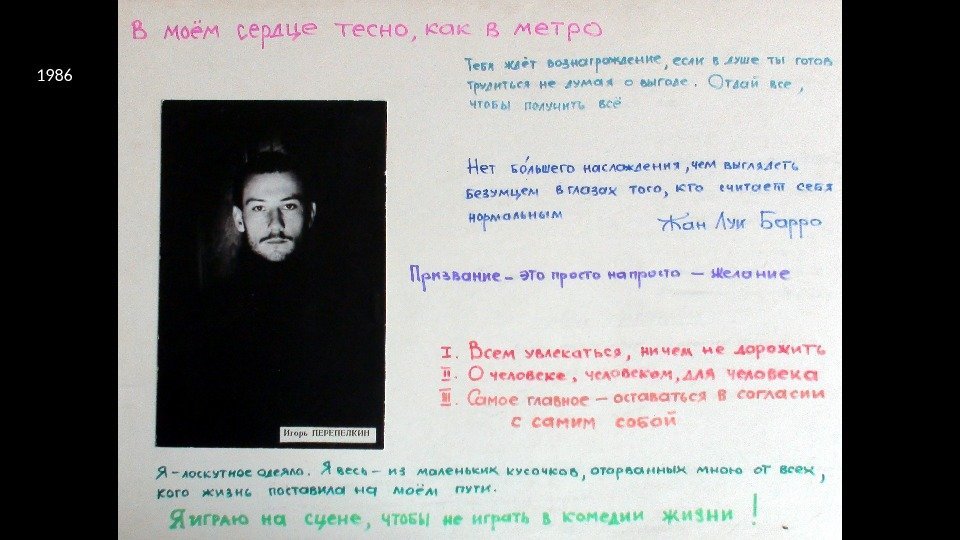 В моём сердце тесно, как в метро
1986
Тебя ждёт вознаграждение, если в душе ты готов
трудиться не думая о выгоде. Отдай всё,
чтобы получить всё
Нет бо́льшего наслаждения, чем выглядеть
безумцем в глазах того, кто считает себя
нормальным
Жан Луи Барро
Призвание – это просто напросто – желание
I. Всем увлекаться, ничем не дорожить
II. О человеке, человеком, для человека
III. Самое главное – оставаться в согласии
с самим собой
Игорь ПЕРЕПЕЛКИН
Я – лоскутное одеяло. Я весь – из маленьких кусочков, оторванных мною от всех,
кого жизнь поставила на моём пути.
Я играю на сцене, чтобы не играть в комедии жизни!